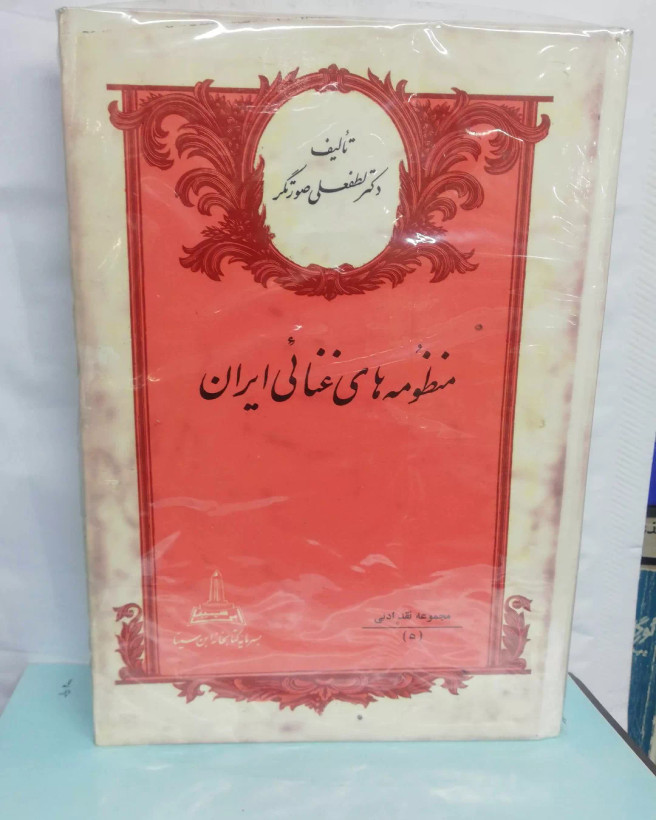 تألیف
دکتر لطفعلی صورتگر
منظومه های غنائی ایران
مجموعه نقد ادبی
(۵)
بسرمایه کتابخانه ابن سینا